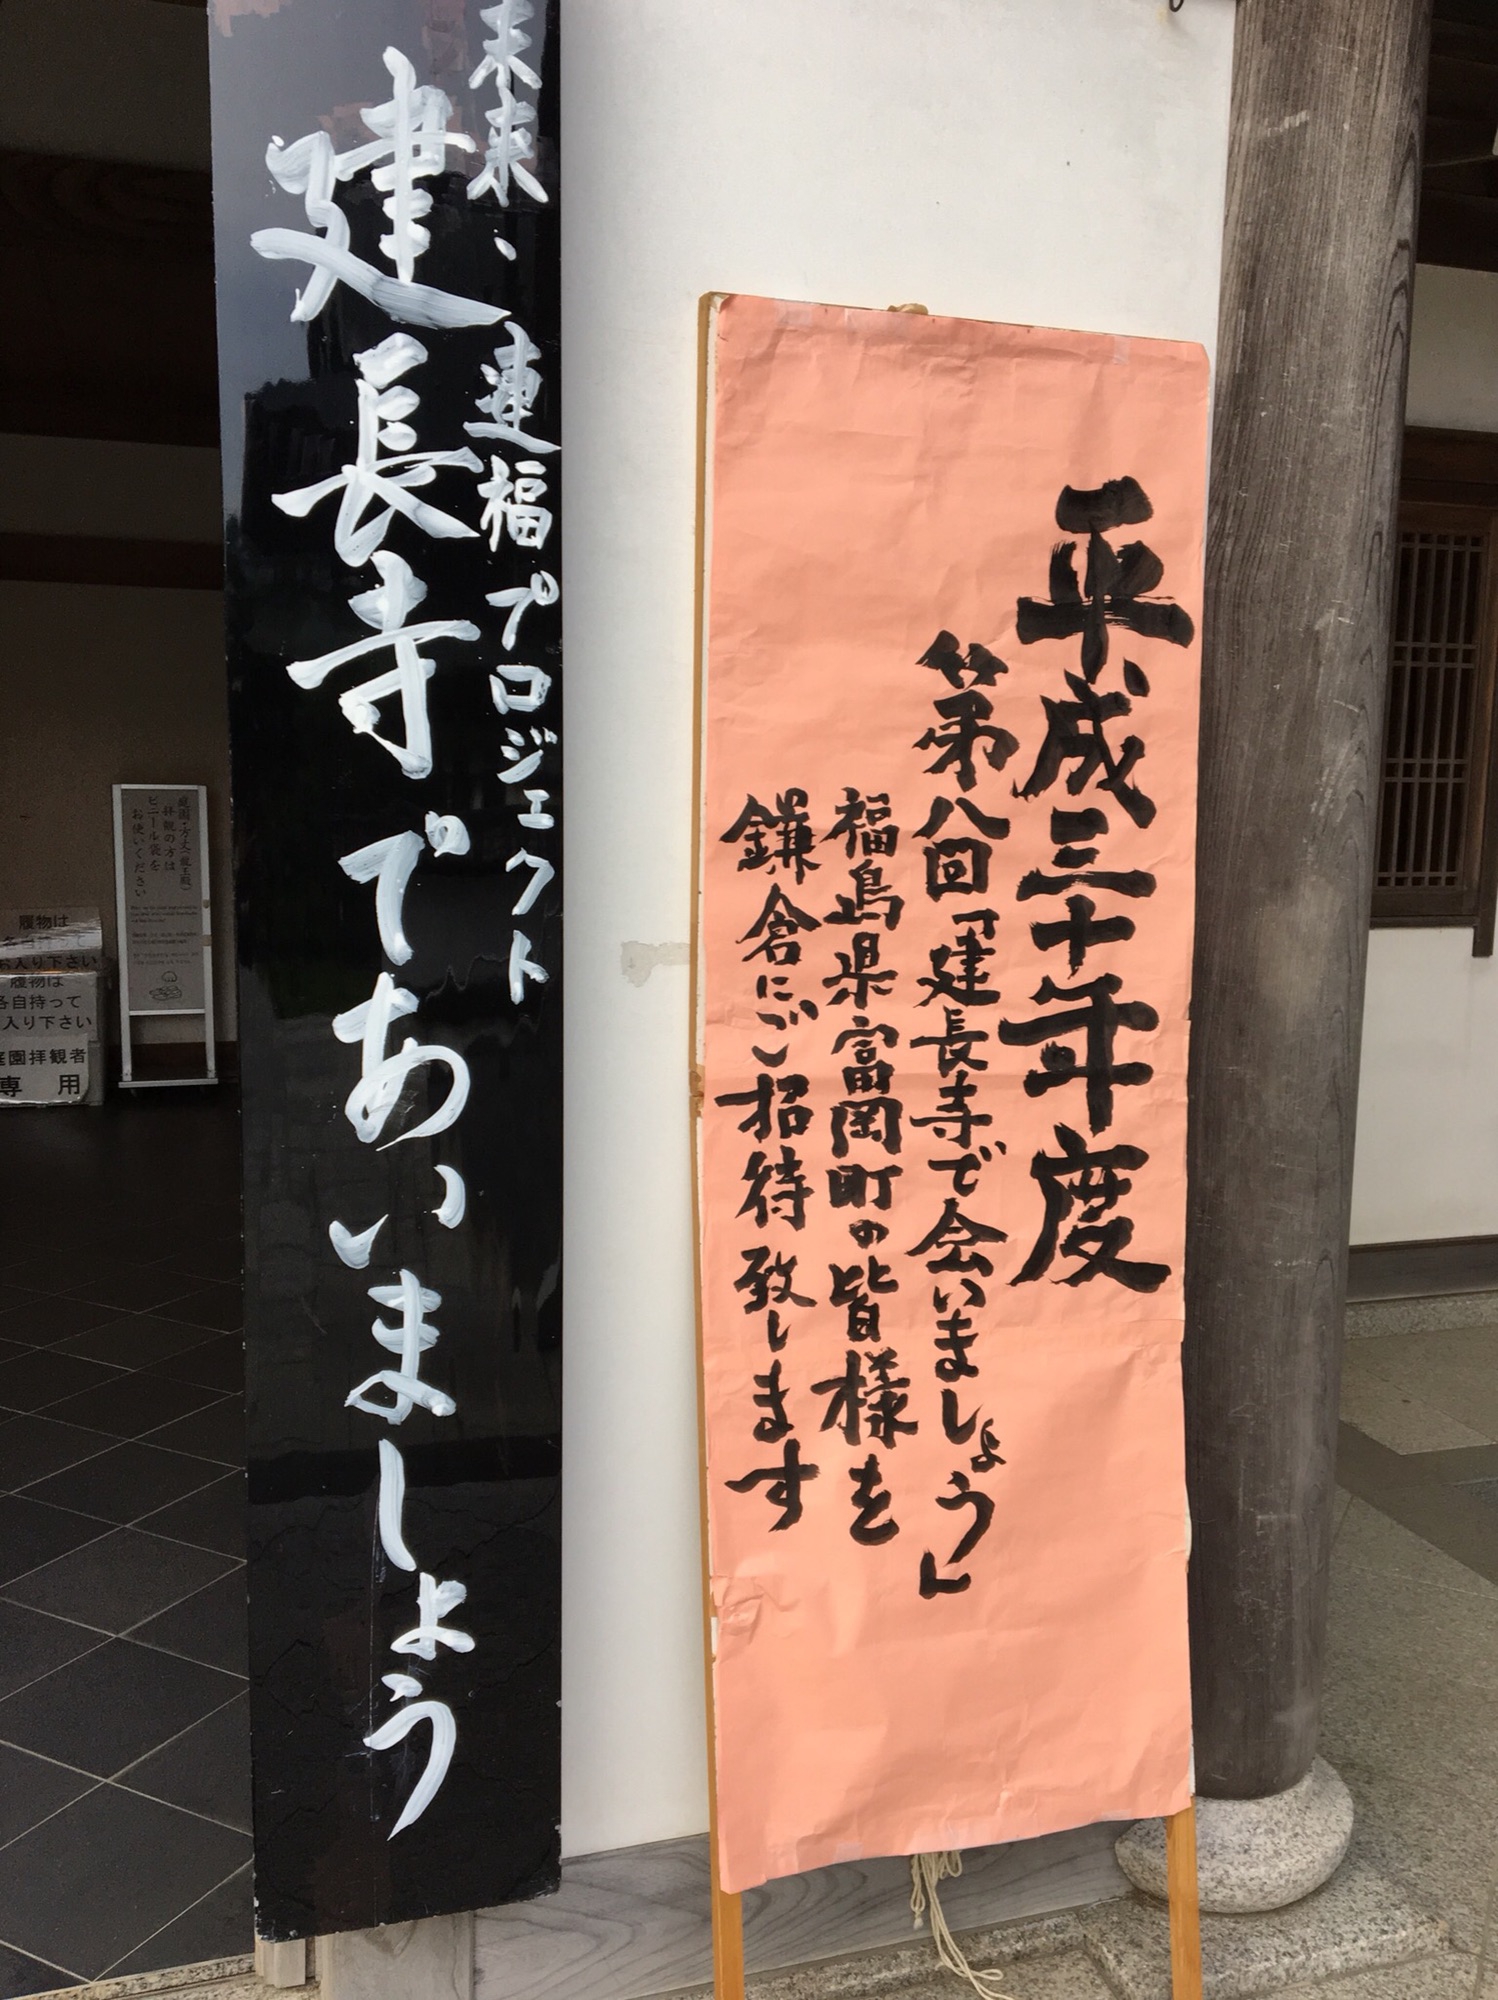 平成三十年度
第八回「建長寺で会いましょう」
福島県富岡町の皆様を
鎌倉にご招待致します
未来、連福プロジェクト
建長寺であいましょう
拝観の方は
ビニール袋を
お使いください
履物は
各自持って
お入り下さい
履物は
各自持って
入り下さい
庭園拝観者
専用